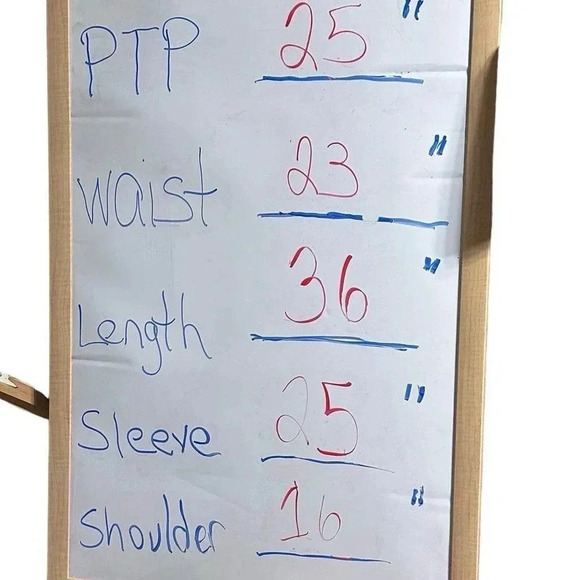 PTP 25 "
Waist 23 "
Length 36 "
Sleeve 25 "
Shoulder 16 "